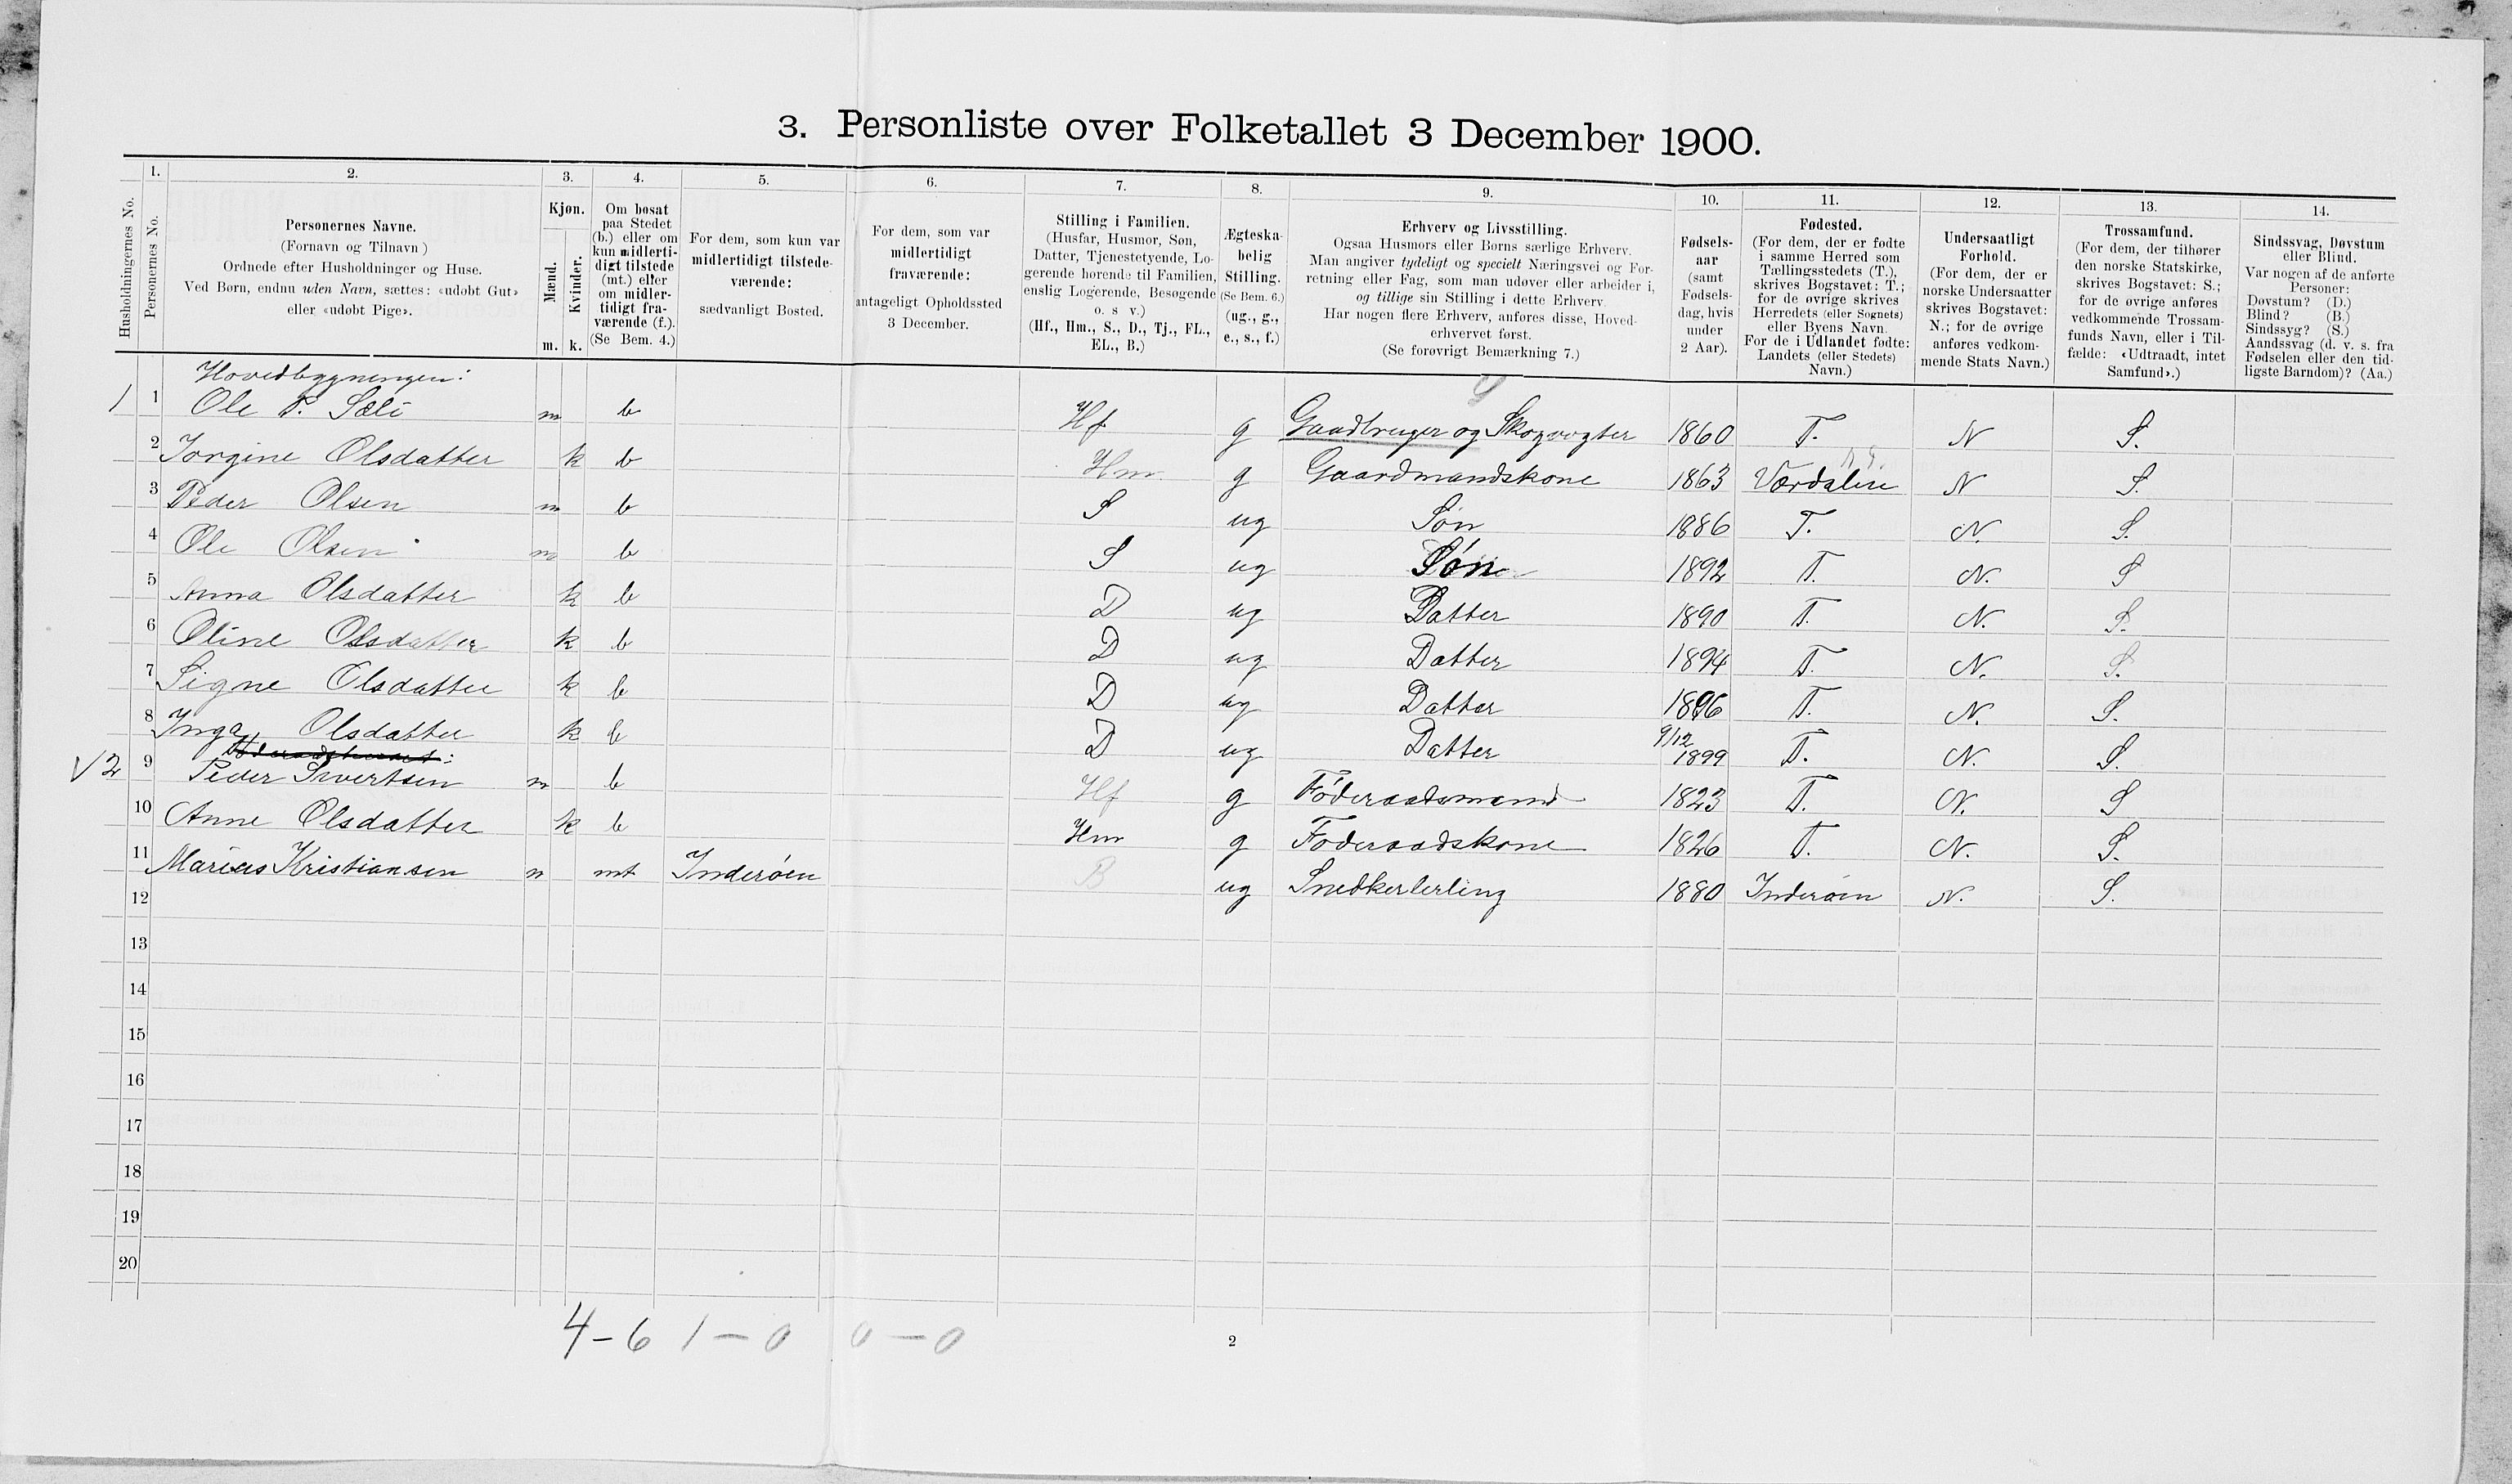 3. Personliste over Folketallet 3 December 1900.
1. 2. 3. 4. 5. 6. 7. 8. 9. 10. 11. 12. 13. 14.
Husholdningernes No.
Personernes No.
Personernes Navne.
(Fornavn og Tilnavn)
Ordnede efter Husholdninger og Huse.
Ved Børn, endnu uden Navn, sættes: «udøbt Gut»
eller «udøbt Pige».
Kjøn.
Mænd.
Kvinder.
m. k.
Om bosat
paa Stedet
(b.) eller om
kun midlerti-
digt tilstede
(mt.) eller
om midler-
tidigt fra-
værende (f.).
(Se Bem. 4.)
For dem, som kun var
midlertidigt tilstede-
værende:
sædvanligt Bosted.
For dem, som var
midlertidigt
fraværende:
antageligt Opholdssted
3 December.
Stilling i Familien.
(Husfar, Husmor, Søn,
Datter, Tjenestetyende, Lo-
gerende hørende til Familien,
enslig Logerende, Besøgende
o. s v.)
(Hf., Hm., S., D., Tj., FL.,
EL., B.)
Ægteska-
belig
Stilling.
(Se Bem. 6.)
(ug., g.,
e., s., f.)
Erhverv og Livsstilling.
Ogsaa Husmors eller Børns særlige Erhverv.
Man angiver tydeligt og specielt Næringsvei og For-
retning eller Fag, som man udøver eller arbeider i,
og tillige sin Stilling i dette Erhverv.
Har nogen flere Erhverv, anføres disse, Hoved-
erhvervet først.
(Se forøvrigt Bemærkning 7.)
Fødsels-
aar
(samt
Fødsels-
dag, hvis
under
2 Aar).
Fødested.
(For dem, der er fødte
i samme Herred som
Tællingsstedets (T.),
skrives Bogstavet: T.;
for de øvrige skrives
Herredets (eller Sognets)
eller Byens Navn.
For de i Udlandet fødte:
Landets (eller Stedets)
Navn.)
Undersaatligt
Forhold.
(For dem, der er
norske Undersaatter
skrives Bogstavet:
N.; for de øvrige
anføres vedkom-
mende Stats Navn.)
Trossamfund.
(For dem, der tilhører
den norske Statskirke,
skrives Bogstavet: S.;
for de øvrige anføres
vedkommende Trossam-
funds Navn, eller i Til-
fælde: «Udtraadt, intet
Samfund».)
Sindssvag, Døvstum
eller Blind.
Var nogen af de anførte
Personer:
Døvstum? (D.)
Blind? (B.)
Sindssyg? (S.)
Aandssvag (d. v. s. fra
Fødselen eller den tid-
ligste Barndom)? (Aa.)
Hovedbygningen:
1 1 Ole P. Sæli m b Hf g Gaadbruger og Skogvogter 1860 T. N S.
2 Jorgine Olsdatter k b Hm g Gaardmandskone 1863 Værdalen N S.
3 Peder Olsen m b S ug Søn 1886 T. N. S.
4 Ole Olsen m b S ug Søn 1892 T. N. S
5 Anna Olsdatter k b D ug Datter 1890 T. N. S.
6 Oline Olsdatter k b D ug Datter 1894 T. N. S.
7 Signe Olsdatter k b D ug Datter 1896 T. N. S.
8 Inga Olsdatter k b D ug Datter 9/12 1899 T. N. S.
√2 9 Peder Sivertsen m b Hf g Føderaadsmand 1823 T. N. S
10 Anne Olsdatter k b Hm g Føderaadskone 1826 T. N. S.
11 Marius Kristiansen m mt Inderøen B ug Snedkerlerling 1880 Inderøen N. S.
12
13
14
15
16
17
18
19
20
4 – 6 1 – 0 0 – 0
2